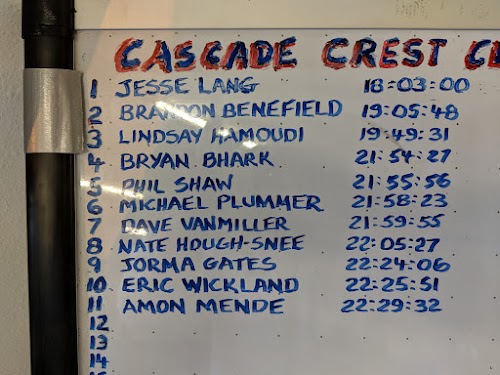 CASCADE CREST
1 JESSE LANG 18:03:00
2 BRANDON BENEFIELD 19:05:48
3 LINDSAY HAMOUDI 19:49:31
4 BRYAN BHARK 21:54:27
5 PHIL SHAW 21:55:56
6 MICHAEL PLUMMER 21:58:23
7 DAVE VANMILLER 21:59:55
8 NATE HOUGH-SNEE 22:05:27
9 JORMA GATES 22:24:06
10 ERIC WICKLAND 22:25:51
11 AMON MENDE 22:29:32
12
13
14